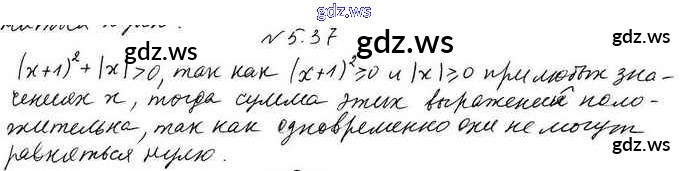 gdz.ws
№5.37
gdz.ws gdz.ws
(x+1)²+|x|>0, так как (x+1)²≥0 и |x|≥0 при любых зна-
чениях x, тогда сумма этих выражений поло-
жительна, так как одновременно они не могут
равняться нулю.
gdz.ws gdz.ws